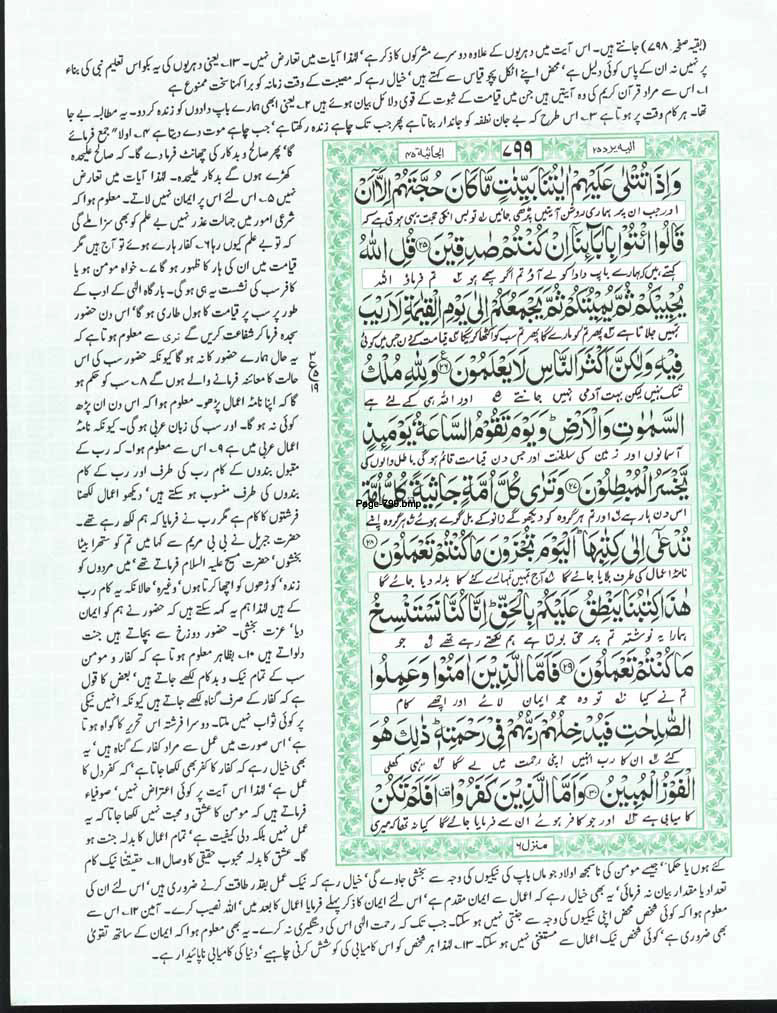 (بقیہ صفحہ ۷۹۸) جانتے ہیں۔ اس آیت میں دہریوں کے علاوہ دوسرے مشرکوں کا ذکر ہے' لہٰذا آیات میں تعارض نہیں۔ ۱۳۔ یعنی دہریوں کی یہ بکواس تعلیم نبی کی بناء
پر نہیں نہ ان کے پاس کوئی دلیل ہے' محض اپنے اٹکل پچو قیاس سے کہتے ہیں' خیال رہے کہ مصیبت کے وقت زمانہ کو برا کہنا سخت ممنوع ہے
۱۔ اس سے مراد قرآن کریم کی وہ آیتیں ہیں جن میں قیامت کے ثبوت کے قوی دلائل بیان ہوئے ہیں ۲۔ یعنی ابھی ہمارے باپ دادوں کو زندہ کر دو۔ یہ مطالبہ بے جا
تھا۔ ہر کام وقت پر ہوتا ہے ۳۔ اس طرح کہ بے جان نطفہ کو جاندار بناتا ہے پھر جب تک چاہے زندہ رکھتا ہے' جب چاہے موت دے دیتا ہے ۴۔ اولاً جمع فرمائے
الیہ یرد ۲۵
۷۹۹
الجاثیۃ ۴۵
وَاِذَا تُتْلٰى عَلَيْهِمْ اٰيٰتُنَا بَيِّنٰتٍ مَّا كَانَ حُجَّتَهُمْ اِلَّآ اَنْ
اور جب ان پر ہماری روشن آیتیں پڑھی جائیں تو بس انکی حجت یہی ہوتی ہے کہ
قَالُوا ائْتُوْا بِاٰبَآئِنَآ اِنْ كُنْتُمْ صٰدِقِيْنَ ۲۵ قُلِ اللّٰهُ
کہتے ہیں کہ ہمارے باپ دادا کو لے آؤ تم اگر سچے ہو تم فرماؤ اللہ
يُحْيِيْكُمْ ثُمَّ يُمِيْتُكُمْ ثُمَّ يَجْمَعُكُمْ اِلٰى يَوْمِ الْقِيٰمَةِ لَا رَيْبَ
تمہیں جلاتا ہے پھر تم کو مارے گا پھر تم سب کو اکٹھا کریگا قیامت کے دن جس میں کوئی
فِيْهِ وَلٰكِنَّ اَكْثَرَ النَّاسِ لَا يَعْلَمُوْنَ ۲۶ وَلِلّٰهِ مُلْكُ
شک نہیں لیکن بہت آدمی نہیں جانتے اور اللہ ہی کے لئے ہے
السَّمٰوٰتِ وَالْاَرْضِ وَيَوْمَ تَقُوْمُ السَّاعَةُ يَوْمَئِذٍ
آسمانوں اور زمین کی سلطنت اور جس دن قیامت قائم ہو گی باطل والوں کی
يَّخْسَرُ الْمُبْطِلُوْنَ ۲۷ وَتَرٰى كُلَّ اُمَّةٍ جَاثِيَةً كُلُّ اُمَّةٍ
Page-799.bmp
اس دن ہار ہے اور تم ہر گروہ کو دیکھو گے زانو کے بل گرے ہوئے ہر گروہ اپنے
تُدْعٰٓى اِلٰى كِتٰبِهَا اَلْيَوْمَ تُجْزَوْنَ مَا كُنْتُمْ تَعْمَلُوْنَ ۲۸
نامۂ اعمال کی طرف بلایا جائے گا آج تمہیں تمہارے کئے کا بدلہ دیا جائے گا
هٰذَا كِتٰبُنَا يَنْطِقُ عَلَيْكُمْ بِالْحَقِّ اِنَّا كُنَّا نَسْتَنْسِخُ
ہمارا یہ نوشتہ تم پر حق بولتا ہے ہم لکھتے رہے تھے جو
مَا كُنْتُمْ تَعْمَلُوْنَ ۲۹ فَاَمَّا الَّذِيْنَ اٰمَنُوْا وَعَمِلُوا
تم نے کیا تو وہ جو ایمان لائے اور اچھے کام
الصّٰلِحٰتِ فَيُدْخِلُهُمْ رَبُّهُمْ فِيْ رَحْمَتِهٖ ذٰلِكَ هُوَ
کئے ان کا رب انہیں اپنی رحمت میں لے گا یہی کھلی
الْفَوْزُ الْمُبِيْنُ ۳۰ وَاَمَّا الَّذِيْنَ كَفَرُوْا اَفَلَمْ تَكُنْ
کامیابی ہے اور جو کافر ہوئے ان سے فرمایا جائے گا کیا نہ تھا کہ میری
منزل ۶
ع
۱۹
گا' پھر صالح و بدکار کی چھانٹ فرما دے گا۔ کہ صالح علیحدہ
کھڑے ہوں گے بدکار علیحدہ۔ لہٰذا آیات میں تعارض
نہیں ۵۔ اس لئے اس پر ایمان نہیں لاتے۔ معلوم ہوا کہ
شرعی امور میں جہالت عذر نہیں بے علم کو بھی سزا ملے گی
کہ تو بے علم کیوں رہا ۶۔ کفار ہارے ہوئے تو آج ہیں مگر
قیامت میں ان کی ہار کا ظہور ہو گا ۷۔ خواہ مومن ہو یا
کافر سب کی نشست یہ ہی ہو گی۔ بارگاہ الٰہی کے ادب کے
طور پر سب پر قیامت کا ہول طاری ہو گا' اس دن حضور
سجدہ فرما کر شفاعت کریں گے تری سے معلوم ہوتا ہے کہ
یہ حال ہمارے حضور کا نہ ہو گا کیونکہ حضور سب کی اس
حالت کا معائنہ فرمانے والے ہوں گے ۸۔ سب کو حکم ہو
گا کہ اپنا نامۂ اعمال پڑھو۔ معلوم ہوا کہ اس دن ان پڑھ
کوئی نہ ہو گا۔ اور سب کی زبان عربی ہو گی۔ کیونکہ نامۂ
اعمال عربی میں ہے ۹۔ اس سے معلوم ہوا۔ کہ رب کے
مقبول بندوں کے کام رب کی طرف اور رب کے کام
بندوں کی طرف منسوب ہو سکتے ہیں' دیکھو اعمال لکھنا
فرشتوں کا کام ہے مگر رب نے فرمایا کہ ہم لکھ رہے تھے۔
حضرت جبریل نے بی بی مریم سے کہا میں تم کو ستھرا بیٹا
بخشوں' حضرت مسیح علیہ السلام فرماتے تھے' میں مردوں کو
زندہ' کوڑھوں کو اچھا کرتا ہوں' وغیرہ' حالانکہ یہ کام رب
کے ہیں لہٰذا ہم یہ کہہ سکتے ہیں کہ حضور نے ہم کو ایمان
دیا' عزت بخشی۔ حضور دوزخ سے بچاتے ہیں جنت
دلواتے ہیں ۱۰۔ بظاہر معلوم ہوتا ہے کہ کفار و مومن
سب کے تمام نیک و بد کام لکھے جاتے ہیں' بعض کا قول
ہے کہ کفار کے صرف گناہ لکھے جاتے ہیں کیونکہ انہیں نیکی
پر کوئی ثواب نہیں ملتا۔ دوسرا فرشتہ اس تحریر کا گواہ ہوتا
ہے' اس صورت میں عمل سے مراد کفار کے گناہ ہیں' یہ
بھی خیال رہے کہ کفار کا کفر بھی لکھا جاتا ہے' کہ کفر دل کا
عمل ہے' لہٰذا اس آیت پر کوئی اعتراض نہیں' صوفیاء
فرماتے ہیں کہ مومن کا عشق و محبت نہیں لکھا جاتا کہ یہ
عمل نہیں بلکہ دلی کیفیت ہے' تمام اعمال کا بدلہ جنت ہو
گا۔ عشق کا بدلہ محبوب حقیقی کا وصال ۱۱۔ حقیقتاً نیک کام
کئے ہوں یا حکماً' جیسے مومن کی ناسمجھ اولاد جو ماں باپ کی نیکیوں کی وجہ سے بخشی جاوے گی' خیال رہے کہ نیک عمل بقدر طاقت کرنے ضروری ہیں' اس لئے ان کی
تعداد یا مقدار بیان نہ فرمائی' یہ بھی خیال رہے کہ اعمال سے ایمان مقدم ہے' اس لئے ایمان کا ذکر پہلے فرمایا اعمال کا بعد میں' اللہ نصیب کرے۔ آمین ۱۲۔ اس سے
معلوم ہوا کہ کوئی شخص محض اپنی نیکیوں کی وجہ سے جنتی نہیں ہو سکتا۔ جب تک کہ رحمت الٰہی اس کی دستگیری نہ کرے۔ یہ بھی معلوم ہوا کہ ایمان کے ساتھ تقویٰ
بھی ضروری ہے' کوئی شخص نیک اعمال سے مستغنی نہیں ہو سکتا۔ ۱۳۔ لہٰذا ہر شخص کو اس کامیابی کی کوشش کرنی چاہیے' دنیا کی کامیابی ناپائیدار ہے۔